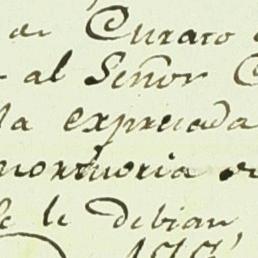 de Curato
al Señor
la expresada
mortuoria
se le debian